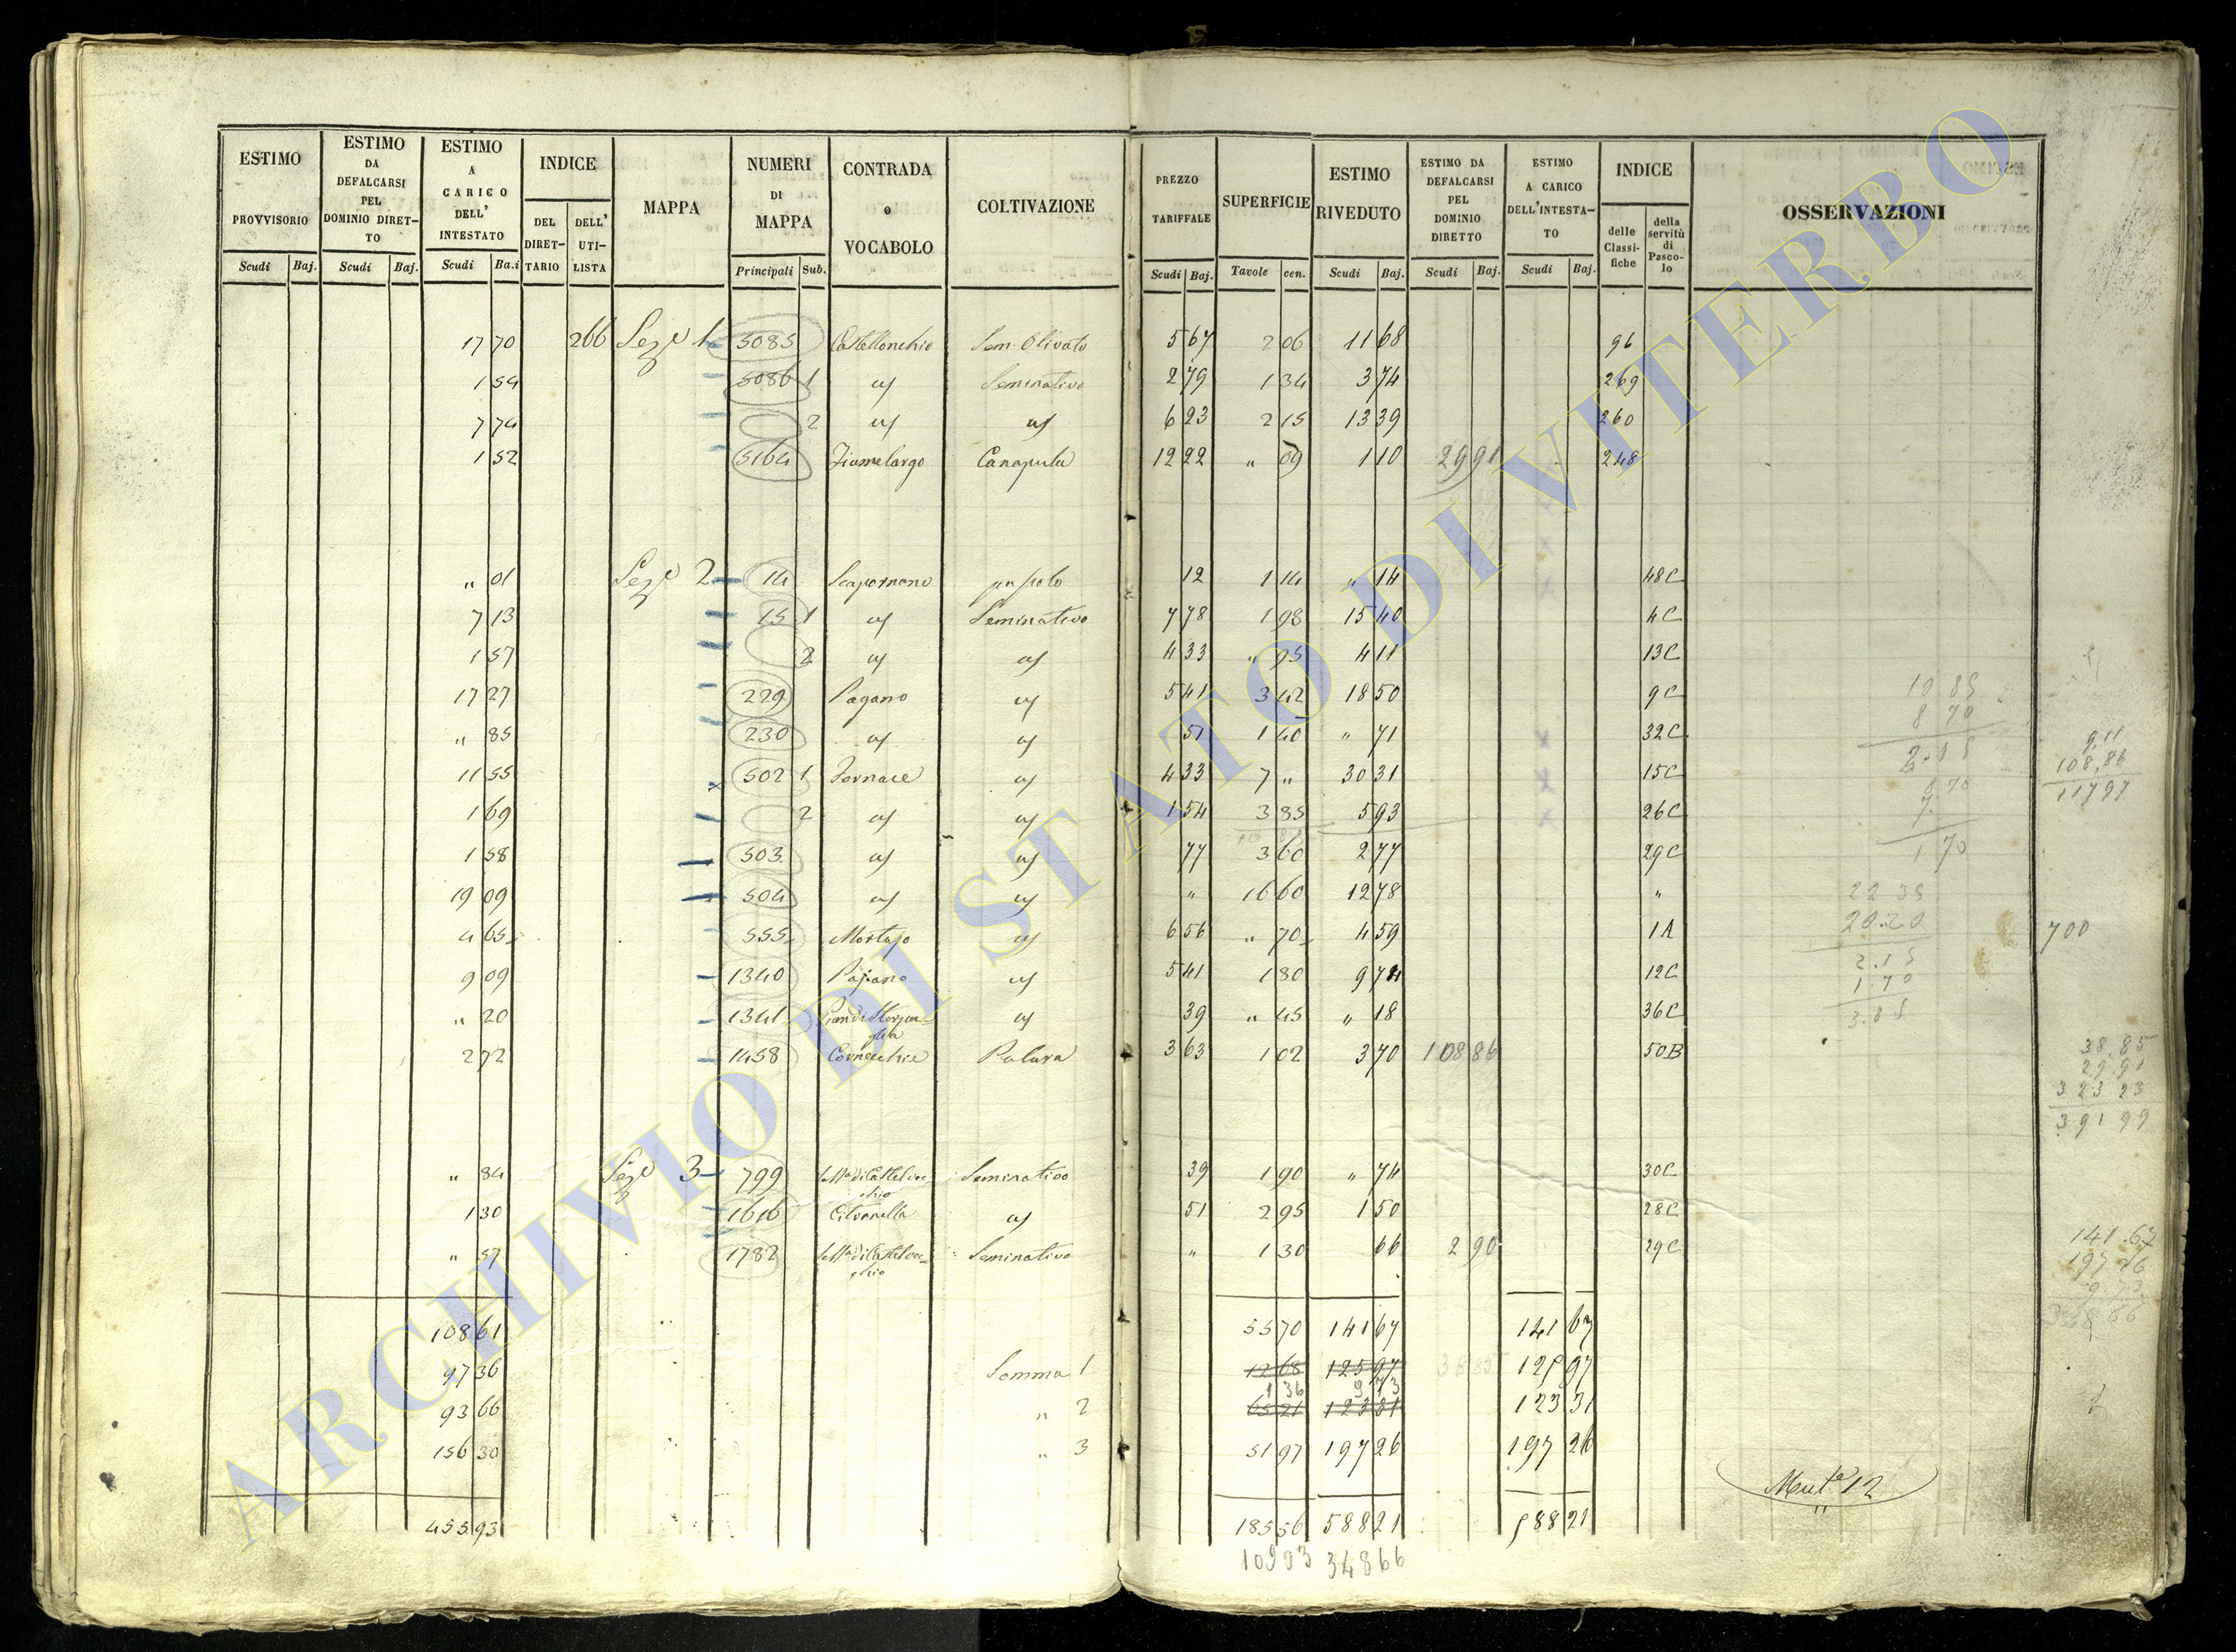 ESTIMO PROVVISORIO Scudi Baj. | ESTIMO DA DEFALCARSI PEL DOMINIO DIRETTO Scudi Baj. | ESTIMO A CARICO DELL' INTESTATO Scudi Ba.i | INDICE DEL DIRETTARIO DELL' UTILISTA | MAPPA | NUMERI DI MAPPA Principali Sub. | CONTRADA o VOCABOLO | COLTIVAZIONE | PREZZO TARIFFALE Scudi Baj. | SUPERFICIE Tavole cen. | ESTIMO RIVEDUTO Scudi Baj. | ESTIMO DA DEFALCARSI PEL DOMINIO DIRETTO Scudi Baj. | ESTIMO A CARICO DELL'INTESTATO Scudi Baj. | INDICE delle Classifiche della servitù di Pascolo | OSSERVAZIONI
17 70 266 Sez.e 1 5085 Castellonchio Sem. Olivato 5 67 2 06 11 68 96
1 54 5086 1 " Seminativo 2 79 1 34 3 74 269
7 74 2 " " 6 23 2 15 13 39 260
1 52 5164 Fiumelargo Canapula 12 22 " 09 1 10 29 91 248
" 01 Sez.e 2 14 Scapornano pascolo 12 1 14 " 14 48C
7 13 15 1 " Seminativo 7 78 1 98 15 40 4C
1 57 2 " " 4 33 " 95 4 11 13C
17 27 229 Pagano " 5 41 3 42 18 50 9C
" 85 230 " " 51 1 40 " 71 32C
11 55 502 1 Fornace " 4 33 7 " 30 31 15C
1 69 2 " " 1 54 3 85 5 93 26C
1 58 503 " " 77 3 60 2 77 29C
19 09 504 " " " 16 60 12 78 "
4 65 555 Mortajo " 6 56 " 70 4 59 1A
9 09 1340 Pagano " 5 41 1 80 9 74 12C
" 20 1341 " 39 " 45 " 18 36C
2 72 1458 Cornecchie Palara 3 63 1 02 3 70 108 86 50B
" 84 Sez.e 3 799 Seminativo 39 1 90 " 74 30C
1 30 1616 Citvanella " 51 2 95 1 50 28C
" 57 1782 Seminativo " 1 30 66 2 90 29C
108 61 55 70 141 67 141 67
97 36 Somma 1 12 68 125 97 38 85 125 97
1 36 9 73
93 66 " 2 65 21 123 31 123 31
156 30 " 3 51 97 197 26 197 26
455 93 185 56 588 21 588 21
109 03 348 66
10 85
8 70
2.15
8 70
1 70
22 35
20.20
2.15
1.70
3.85
Mut.e 12
9,11
108,86
117 97
700
38.85
29.91
323 23
391 99
141.67
197 26
9 73
348 66
ARCHIVIO DI STATO DI VITERBO